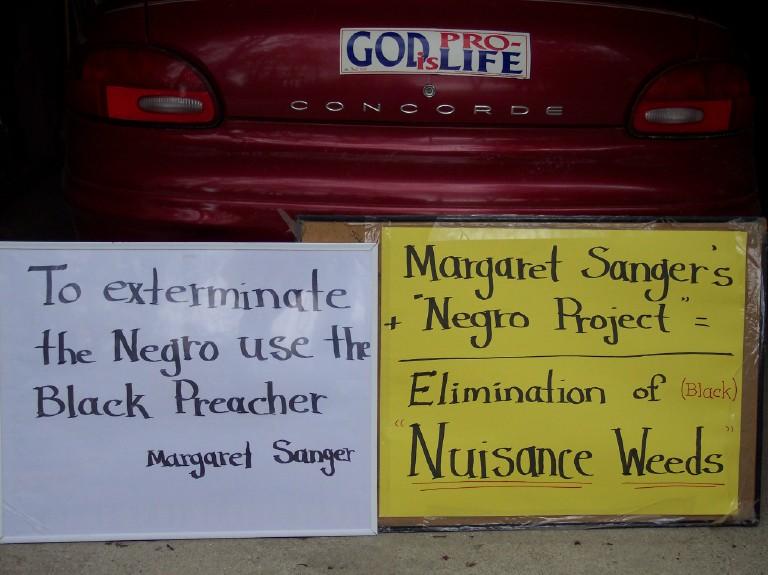 GOD is PRO-LIFE
CONCORDE
To exterminate
the Negro use the
Black Preacher
Margaret Sanger
Margaret Sanger's
+ "Negro Project" =
Elimination of (Black)
"Nuisance Weeds"